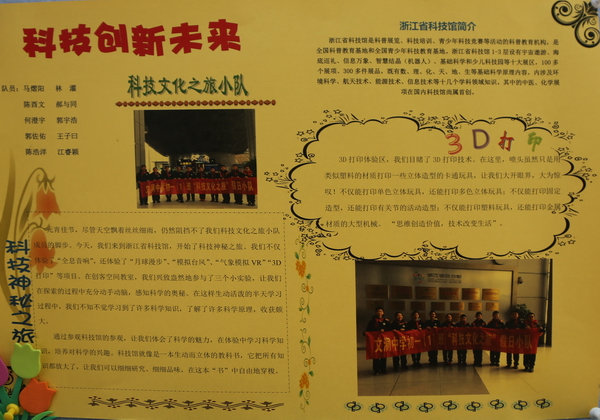 科技创新未来
科技文化之旅小队
队员：马熠阳 林灏
陈酉文 郝与同
何澄宇 郭宇浩
郭佐佑 王子曰
陈浩洋 江睿颖
元宵佳节，尽管天空飘着丝丝细雨，仍然阻挡不了我们科技文化之旅小队
成员的脚步。今天，我们来到浙江省科技馆，开始了科技神秘之旅。我们不仅
体验了“全息音响”，还体验了“月球漫步”、“模拟台风”、“气象模拟VR”“3D
打印”等项目。在创客空间教室，我们兴致盎然地参与了三个小实验，让我们
在探索的过程中充分动手动脑，感知科学的奥秘。在这样生动活泼的半天学习
过程中，我们不知不觉学习到了许多科学知识，了解了许多科学原理，收获颇
大。
通过参观科技馆的参观，让我们体会了科学的魅力，在体验中学习科学知
识，培养对科学的兴趣。科技馆就像是一本生动而立体的教科书，它把所有知
识都放大了，让我们可以细细研究、细细品味，在这本“书”中自由地穿梭。
科技神秘之旅
浙江省科技馆简介
浙江省科技馆是科普展览、科技培训、青少年科技竞赛等活动的科普教育机构，是
全国科普教育基地和全国青少年科技教育基地。浙江省科技馆1-3层设有宇宙遨游、海
底巡礼、信息万象、智慧结晶（机器人）、基础科学和少儿科技园等十大展区，100多
个展项，300多件展品，既有数、理、化、天、地、生等基础科学原理内容，内涉及环
境科学、航天技术、能源技术、信息技术等十几个学科领域知识，其中的中医、化学展
项在国内科技馆尚属首创。
3D打印
3D打印体验区，我们目睹了3D打印技术。在这里，喷头虽然只是用
类似塑料的材质打印一些立体造型的卡通玩具，让我们大开眼界，大为惊
叹！不仅能打印单色立体玩具，还能打印多色立体玩具；不仅能打印固定
造型，还能打印有关节的活动造型；不仅能打印塑料玩具，还能打印金属
材质的大型机械。“思维创造价值，技术改变生活”。